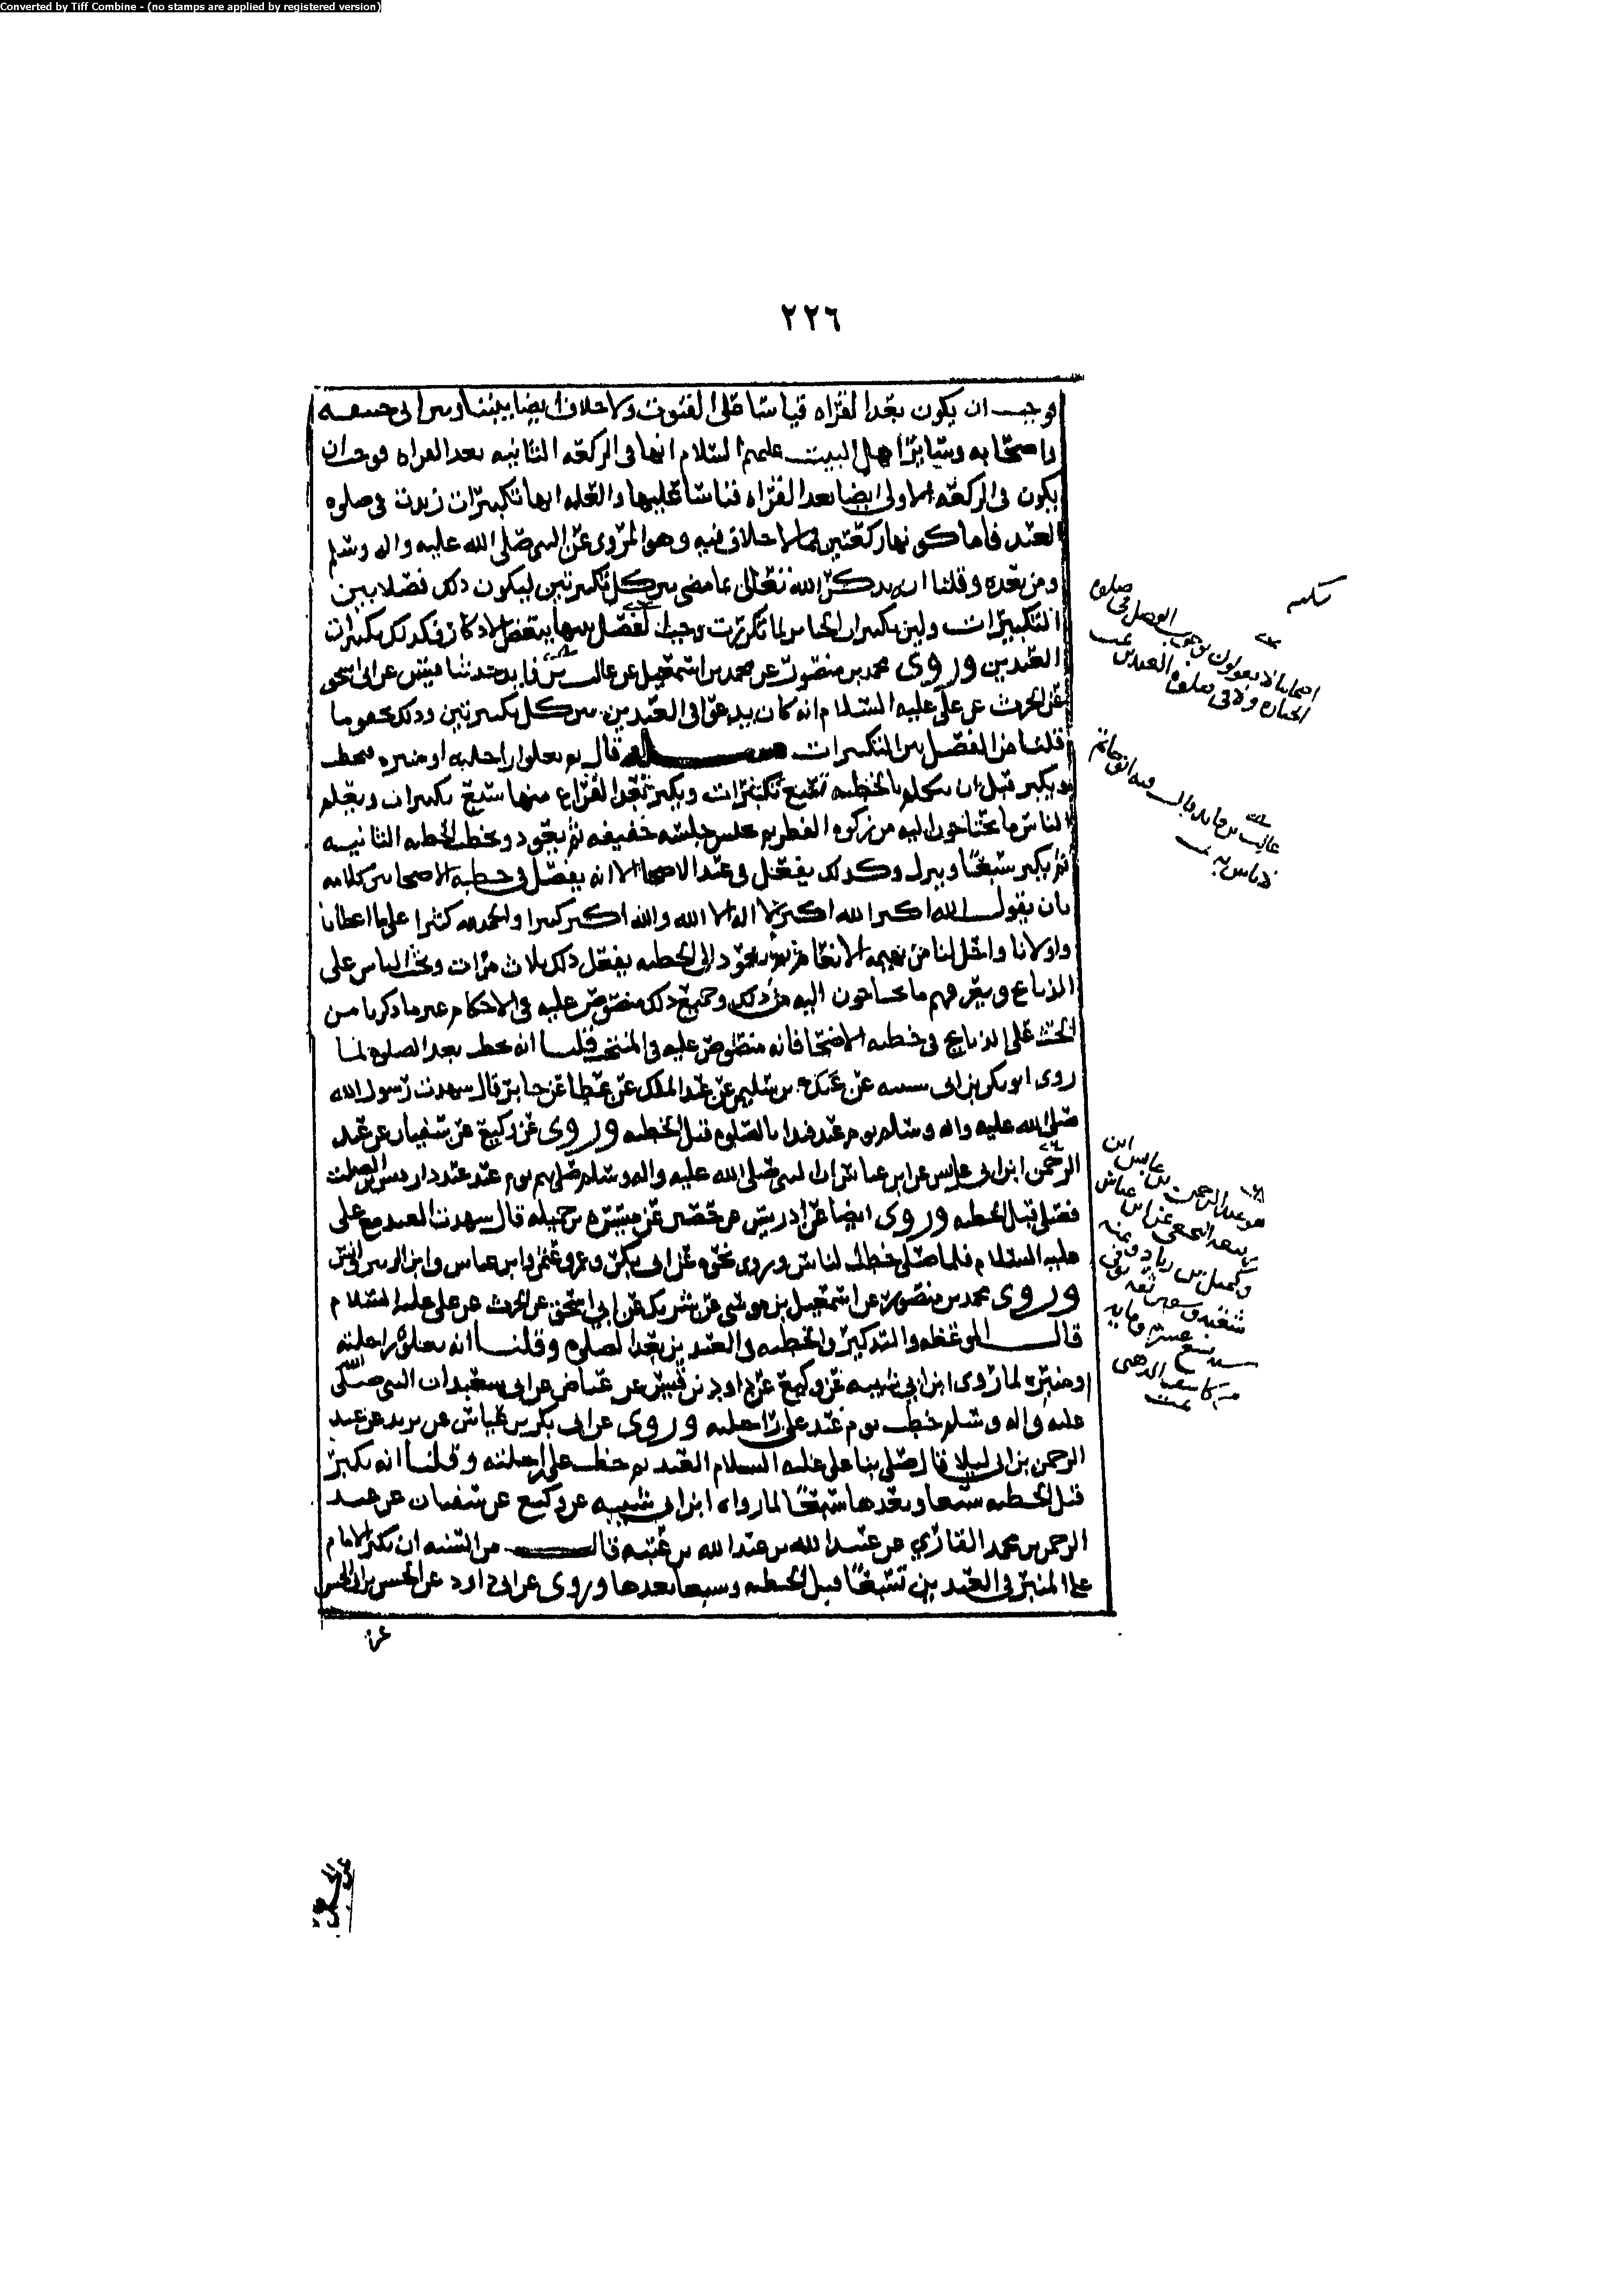 Converted by Tiff Combine - (no stamps are applied by registered version)
٢٢٦
فوجب ان يكون بعد القراه قياسا على القنوت ولا خلاف ايضا بيننا وبين ابى حنيفه
واصحابه وسائر اهل البيت عليهم السلام انها فى الركعه الثانيه بعد القراه فوجب ان
يكون فى الركعه الاولى ايضا بعد القراه قياسا عليها والعله انها تكبيرات زيدت فى صلوه
العيد فاما كونها ركعتين فمما لا خلاف فيه وهو المروى عن النبى صلى الله عليه واله وسلم
ومن بعده وقلنا انه يذكر الله تعالى بما مضى بين كل تكبيرتين ليكون ذلك فصلا بين
التكبيرات ولين تكبيرات الجنايز لما تكررت وجب الفصل بينها ببعض الاذكار فكذلك تكبيرات
العيدين وروى محمد بن منصور عن محمد بن اسمعيل عن عايذ حدثنا قيس عن ابى اسحق
عن الحرث عن على عليه السلام انه كان يدعو فى العيدين بين كل تكبيرتين وذلك نحو ما
قلنا من الفصل بين التكبيرات مسئله قال ثم يعلو راحلته او منبره فيخطب
ويكبر قبل ان يتكلم بالخطبه تسع تكبيرات ويكبر بعد الفراغ منها سبع تكبيرات ويعلم
الناس ما يحتاجون اليه من زكوه الفطر ثم يجلس جلسه خفيفه ثم يعود ويخطب الخطبه الثانيه
ثم يكبر سبعا وينزل وكذلك يفعل فى عيد الاضحى الا انه يفصل فى خطبه الاضحى بين كلامه
بان يقول الله اكبر الله اكبر لا اله الا الله والله اكبر كبيرا والحمد لله كثيرا على ما اعطانا
واولانا واحل لنا من بهيمه الانعام ثم يعود الى الخطبه يفعل ذلك ثلاث مرات ويحث الناس على
الذبايح ويعرفهم ما يحتاجون اليه من ذلك وجميع ذلك منصوص عليه فى الاحكام غير ما ذكرنا من
الحث على الذبايح فى خطبه الاضحى فانه منصوص عليه فى المنتخب قلنا انه يخطب بعد الصلوه لما
روى ابو بكر بن ابى شيبه عن بن سليم عن عبد الملك عن عطا عن جابر قال شهدت رسول الله
صلى الله عليه واله وسلم يوم عيد فبدا بالصلوه قبل الخطبه وروى عن وكيع عن سفيان عن عبد
الرحمن ابن عابس عن ابن عباس ان النبى صلى الله عليه واله وسلم صلى بهم يوم عيد عند دار بن الصلت
فصلى قبل الخطبه وروى ايضا عن ادريس عن حصين عن ميسره بن جميله قال شهدت العيد مع على
عليه السلام فلما صلى خطب الناس وروى نحوه عن ابى بكر وعمر وعثمن وابن عباس وابن الزبير
وروى محمد بن منصور عن اسمعيل بن موسى عن شريك عن ابى اسحق عن الحرث عن على عليه السلام
قال الموعظه والتذكير والخطبه فى العيدين بعد الصلوه وقلنا انه يعلو راحلته
او منبره لما روى ابن ابى شيبه عن وكيع عن داود بن قيس عن عياض عن ابى سعيد ان النبى صلى الله
عليه واله وسلم خطب يوم عيد على راحلته وروى عن ابى بكر بن عياش عن يزيد عن عبد
الرحمن بن ابى ليلا قال صلى بنا على عليه السلام العيد ثم خطب على راحلته وقلنا انه يكبر
قبل الخطبه تسعا وبعدها سبعا لما رواه ابن ابى شيبه عن وكيع عن سفيان عن عبد
الرحمن بن محمد القارى عن عبيد الله بن عبد الله بن عتبه قال من السنه ان يكبر الامام
على المنبر فى العيدين تسعا قبل الخطبه وسبعا بعدها وروى عن ابى داود عن الحسن بن ابى الحسن
عن
اصحابنا لا يقولون بوجوب الفصل فى صلوه
الجنازه ولا فى صلوه العيدين تمت
هو عبد الرحمن بن عابس ابن